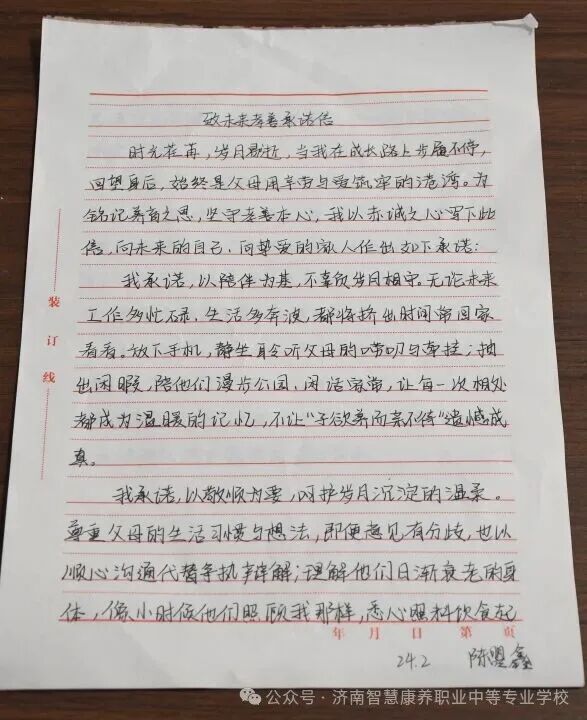 致未来孝善承诺信
时光荏苒，岁月勘近，当我在成长路上步履不停，
回望身后，始终是父母用辛劳与爱筑牢的港湾。为
铭记养育之恩，坚守孝善本心，我以赤诚之心写下此
信，向未来的自己、向挚爱的家人作出如下承诺：
我承诺，以陪伴为基，不辜负岁月相守。无论未来
工作多忙碌、生活多奔波，都将挤出时间常回家
看看。放下手机，静坐聆听父母的唠叨与牵挂；抽
出闲暇，陪他们漫步公园、闲话家常，让每一次相处
都成为温暖的记忆，不让“子欲养而亲不待”遗憾成
真。
我承诺，以敬顺为要，呵护岁月沉淀的温柔。
尊重父母的生活习惯与想法，即便意见有分歧，也以
顺心沟通代替争执辩解；理解他们日渐衰老的身
体，像小时候他们照顾我那样，悉心照料饮食起
装订线
年 月 日 第 页
24.2 陈曌鑫
公众号·济南智慧康养职业中等专业学校